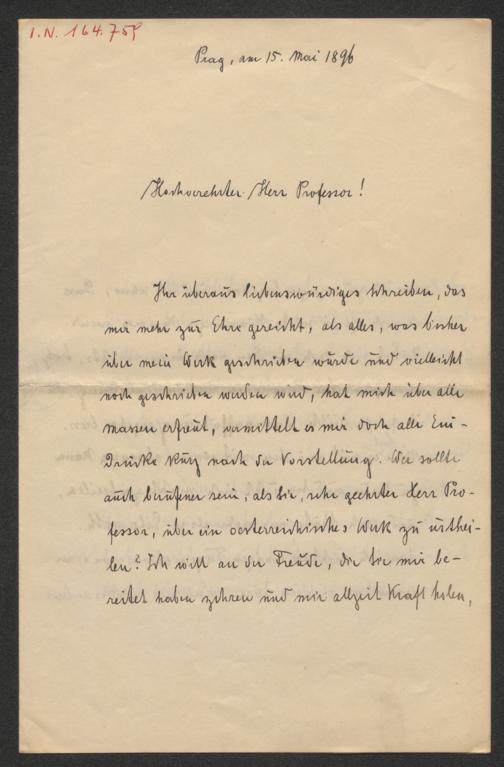 I.N. 164.759
Prag, am 15. Mai 1896
Hochverehrter Herr Professor!
Ihr überaus liebenswürdiges Schreiben, das
mir mehr zur Ehre gereicht, als alles, was bisher
über mein Werk geschrieben wurde und vielleicht
noch geschrieben werden wird, hat mich über alle
massen erfreut, vermittelt es mir doch alle Ein-
drücke kurz nach der Vorstellung. Wer sollte
auch berufener sein, als Sie, sehr geehrter Herr Pro-
fessor, über ein oesterreichisches Werk zu urthei-
len? Ich will an der Freude, die Sie mir be-
reitet haben zehren und mir allzeit Kraft holen,